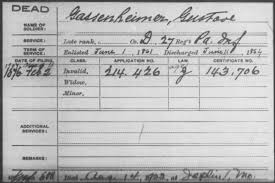 DEAD
NAME OF SOLDIER: Gassenheimer, Gustave
SERVICE: Late rank, Co. D, 27 Reg't Pa. Inf
TERM OF SERVICE: Enlisted June 1, 1861 Discharged June 11, 1864
DATE OF FILING. CLASS. APPLICATION NO. LAW. CERTIFICATE NO.
1876 Feb 2 Invalid, 214.426 143,706
Widow,
Minor,
ADDITIONAL SERVICES:
REMARKS:
Died Aug 1st at Joplin, Mo.